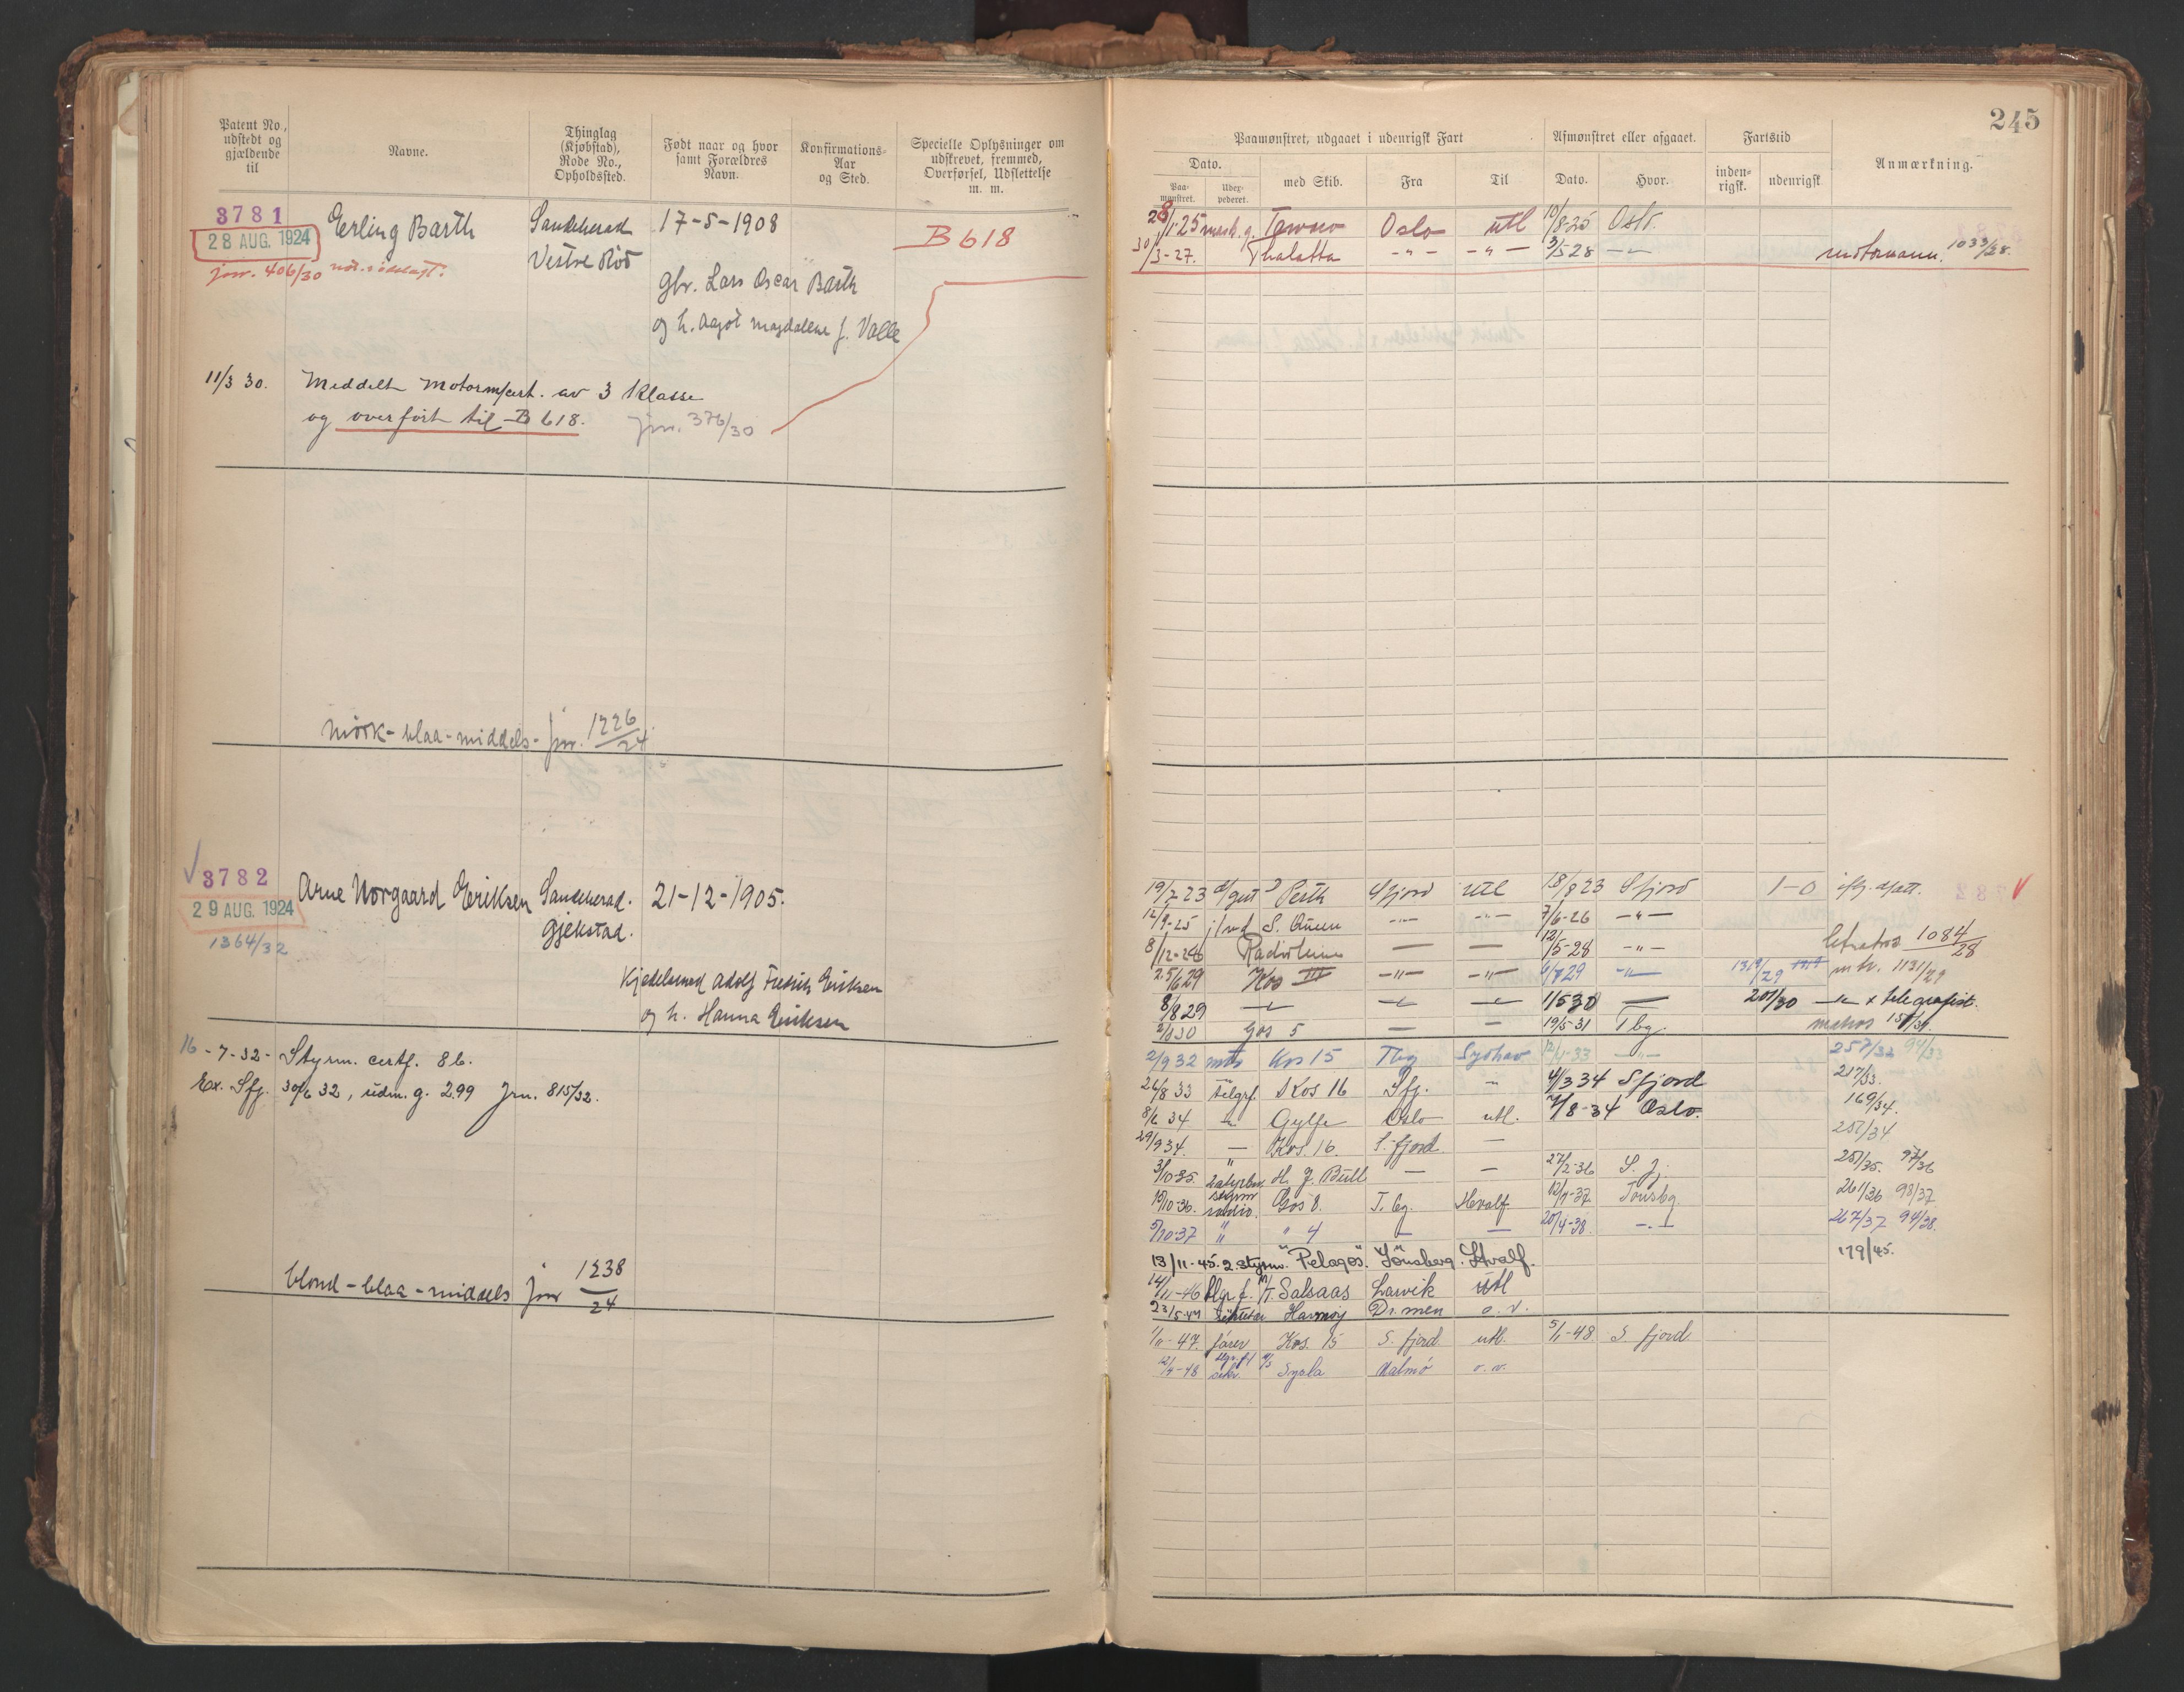 245
Patent No., udstedt og gjældende til
Navne.
Thinglag (Kjøbstad), Rode No., Opholdssted.
Født naar og hvor samt Forældres Navn.
Konfirmations-Aar og Sted.
Specielle Oplysninger om udskrevet, fremmed, Overførsel, Udslettelse m. m.
Paamønstret, udgaaet i udenrigsk Fart
Afmønstret eller afgaaet.
Fartstid
Anmærkning.
Dato.
med Skib.
Fra
Til
Dato.
Hvor.
inden-rigsk.
udenrigsk
Paa-mønstret.
Udex-pederet.
3781
28 AUG. 1924
jnr. 406/30
Erling Barth
Sandeherad
Vestre Röd
17-5-1908
gbr. Lars Oscar Barth
og h. Aagot Magdalene f. Valle
B 618
11/3 30. Meddelt motorm/cert. av 3 Klasse
og overfört til B 618. jnr. 376/30
Mörk - blaa - middels - jnr. 1226/24
/1 25 Oslo utl 10/8 25 Oslo.
30/3-27. Thalatta -"- -"- 3/5 28 motormann. 1033/28.
3782
29 AUG. 1924
1364/32
Arne Norgaard Eriksen
Sandeherad.
Gjekstad.
21-12-1905.
Kjedelsmed Adolf Fredrik Eriksen
og h. Hanna Eriksen
16-7-32 - Styrm. certf. 86.
Ex. Sfj. 30/6 32, udm. g. 2.99 Jrn. 815/32.
blond - blaa - middels jnr 1238/24
19/7 23 d/gut Perth Sfjord Utl 18/8 23 Sfjord 1-0
12/9-25 S. Queen -"- -"- 7/6-26 -"-
8/12-26 12/5-28 -"- letmatros 1084/28
25/6 29 Kos III -"- -"- 29 -"- 1131/29
8/8 29 1/5 30 201/30 x telegrafist.
30 Gos 5 19/5-31 Tbg. matros
2/9 32 Kos 15 Tbg Sydhav 12/4-33 257/32 94/33
26/8 33 telgrf. Kos 16 Sfj. 4/3 34 Sfjord 217/33.
8/6 34 Gylfe Oslo utl. 7/8-34 Oslo. 169/34.
29/9 34. Kos. 16. S. fjord. 251/34
3/10-35. H. J. Bull 27/2-36 S. fj. 251/35. 97/36
10/10-36. styrm radio. Gos 8. T. bg. Hvalf. 12/4-37 Tönsbg. 261/36 98/37
5/10-37 " " 4 20/4-38. 267/37 94/38.
13/11-45. 2. styrm. "Pelagos". Tönsberg. Hvalf. 179/45.
14/11-46 M/T Salsaas Larvik utl
23/5-47 Havmöy Dr.men o. v.
47. förer Kos. 15 S. fjord utl. 5/1-48 S. fjord.
12/4-48 Sysla Malmö o. v.